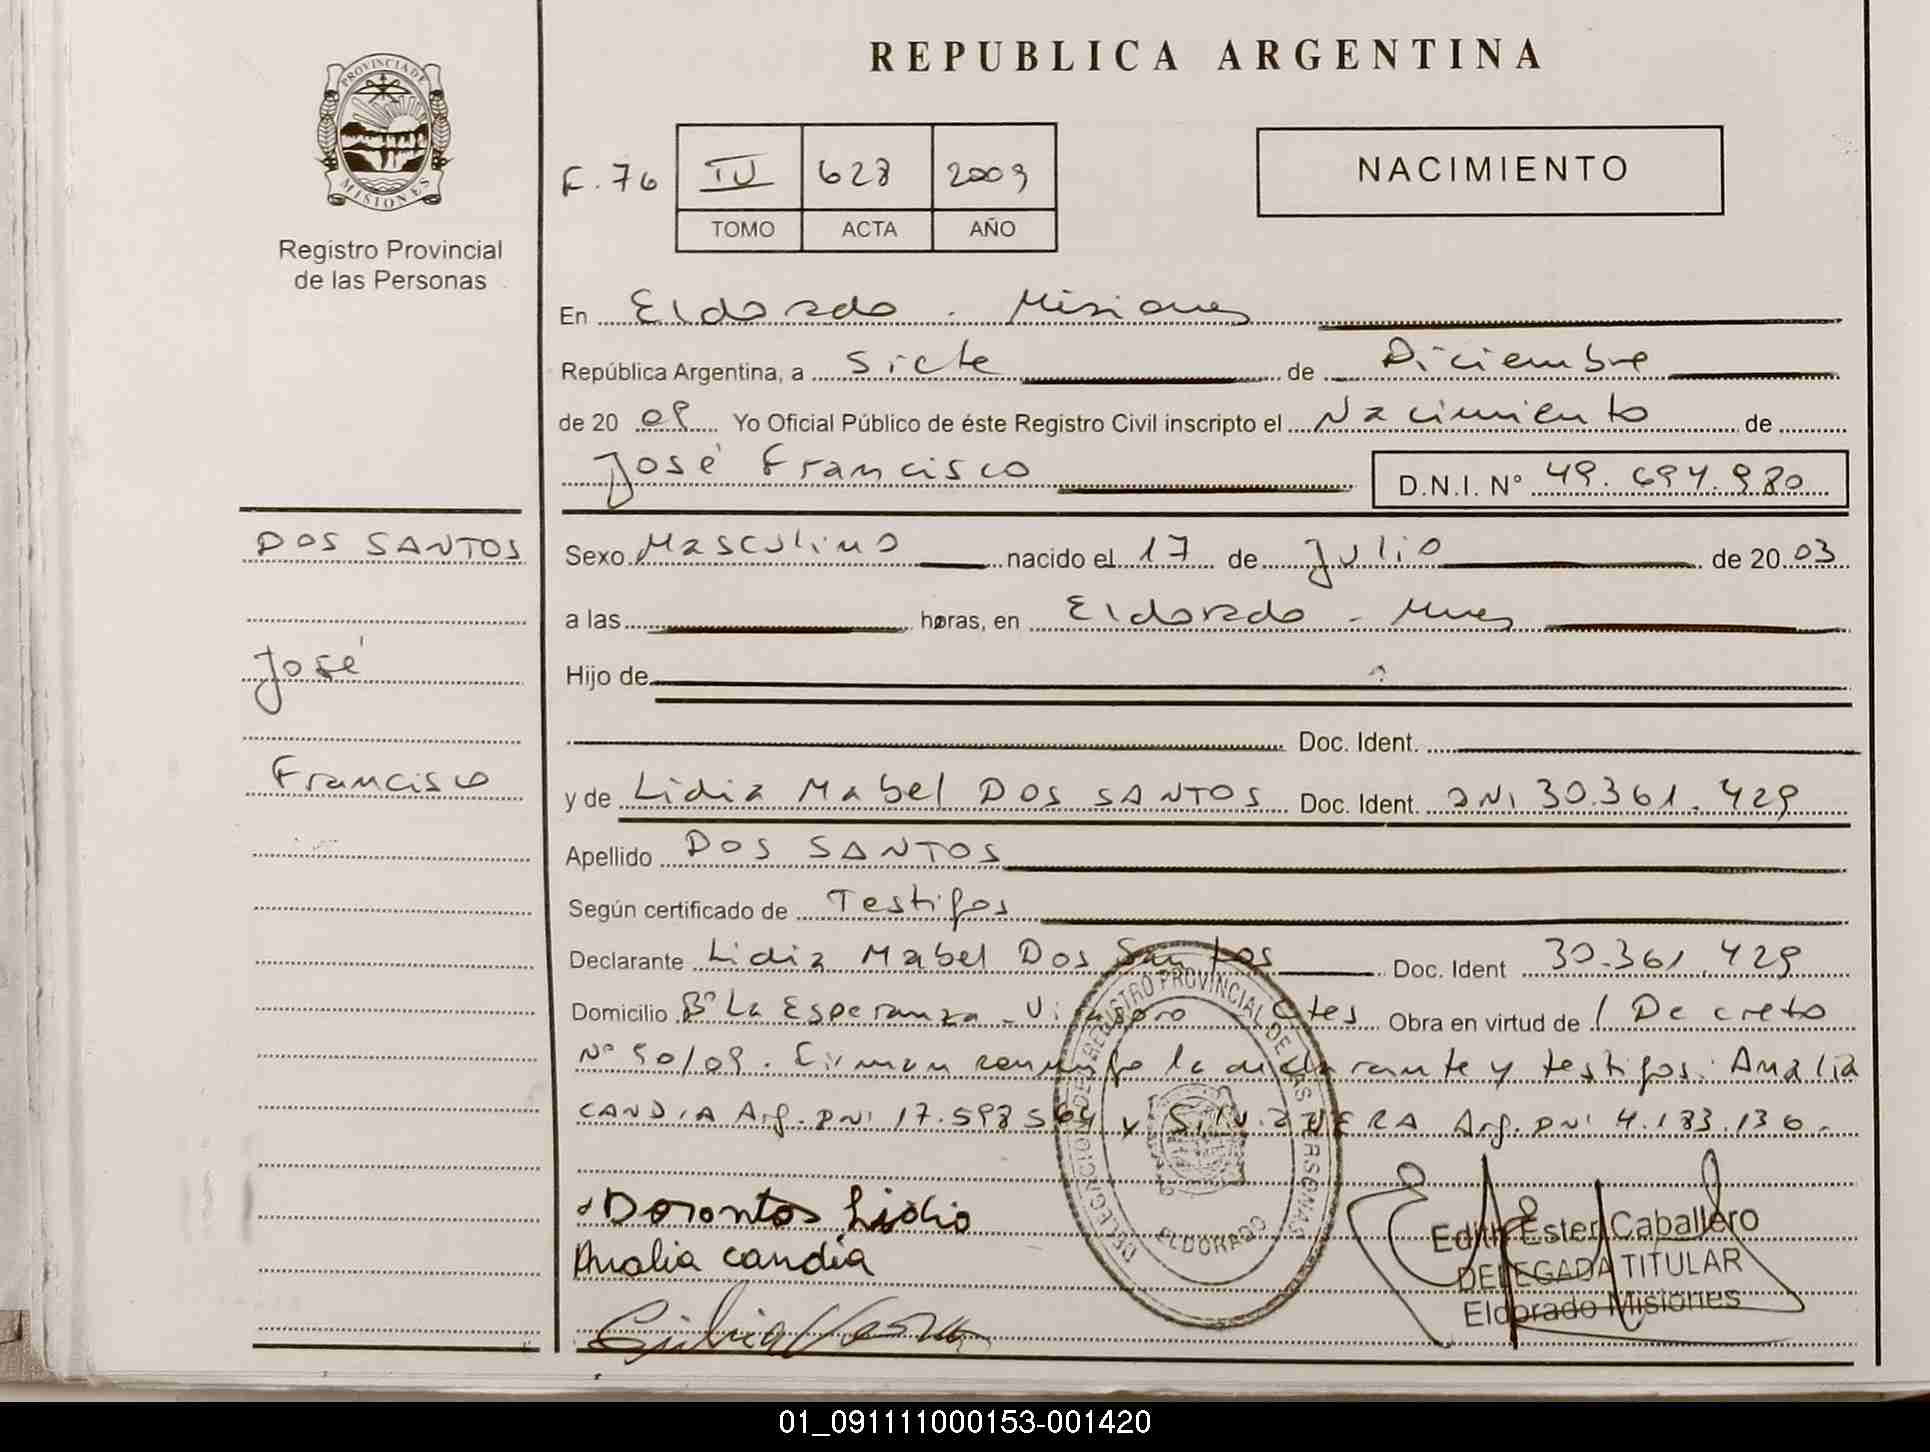 REPUBLICA ARGENTINA
PROVINCIA DE
MISIONES
Registro Provincial
de las Personas
F. 76
IV 628 2009
TOMO ACTA AÑO
NACIMIENTO
En Eldorado . Misiones
República Argentina, a siete de Diciembre
de 20 09 Yo Oficial Público de éste Registro Civil inscripto el Nacimiento de
José Francisco D.N.I. N° 49.694.980
DOS SANTOS
José
Francisco
Sexo Masculino nacido el 17 de Julio de 20 03
a las horas, en Eldorado - Mnes
Hijo de
Doc. Ident.
y de Lidia Mabel DOS SANTOS Doc. Ident. DNI 30.361.429
Apellido DOS SANTOS
Según certificado de Testigos
Declarante Lidia Mabel Dos Santos Doc. Ident 30.361.429
Domicilio B° La Esperanza - Virasoro Ctes Obra en virtud de Decreto
N° 90/09. Firman conmigo la declarante y testigos: Analia
CANDIA Arg. DNI 17.598.564 y Silvia VERA Arg. DNI 4.183.136.-
Dosantos Lidia
Analia candia
Silvia Vera
DELEGACION DEL REGISTRO PROVINCIAL DE LAS PERSONAS
ELDORADO
Edith Ester Caballero
DELEGADA TITULAR
Eldorado Misiones
01_091111000153-001420